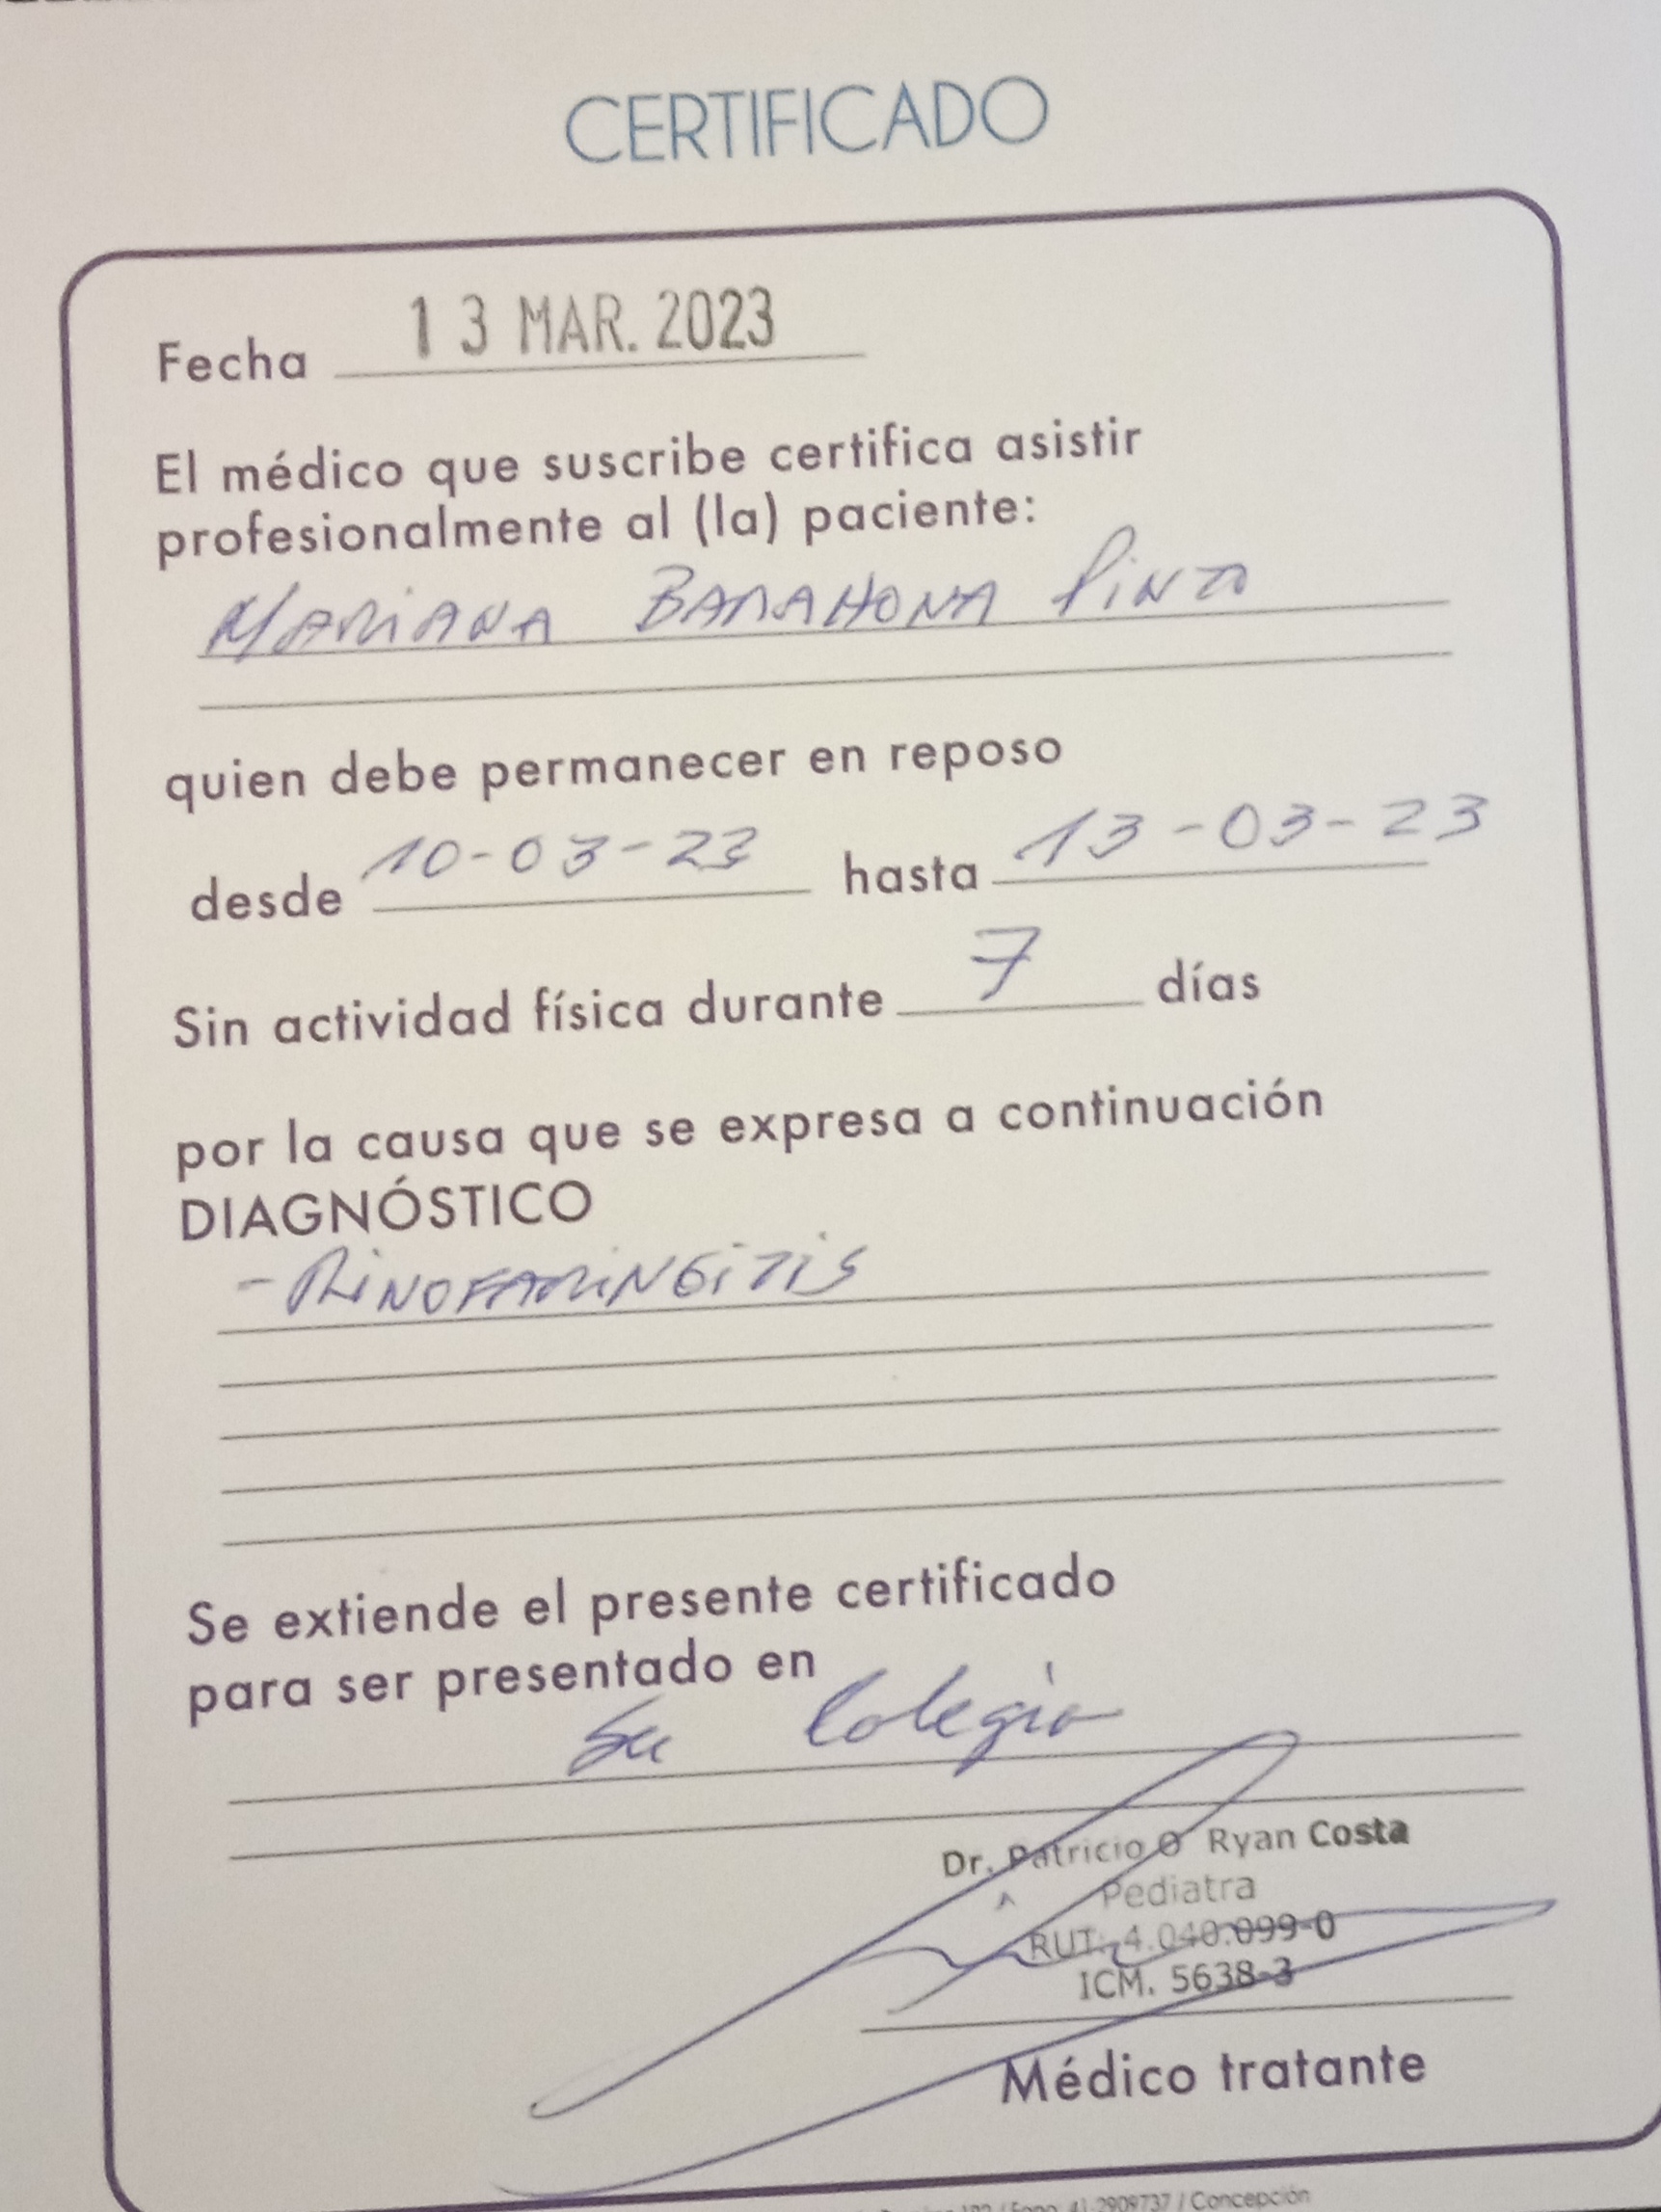 CERTIFICADO
Fecha 13 MAR. 2023
El médico que suscribe certifica asistir
profesionalmente al (la) paciente:
MARIANA BARAHONA PINTO
quien debe permanecer en reposo
desde 10-03-23 hasta 13-03-23
Sin actividad física durante 7 días
por la causa que se expresa a continuación
DIAGNÓSTICO
- RINOFARINGITIS
Se extiende el presente certificado
para ser presentado en
Su Colegio
Dr. Patricio O Ryan Costa
Pediatra
RUT: 4.040.099-0
ICM. 5638-3
Médico tratante
/ Fono 41-2909737 / Concepción